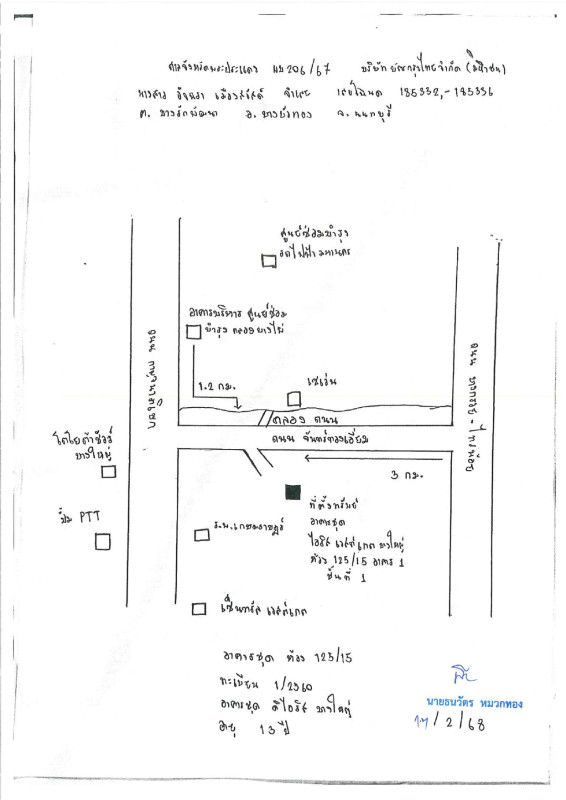 ศาลจังหวัดพระประแดง ผบ 206/67 บริษัท บัตรกรุงไทยจำกัด (มหาชน)
นางสาว จำเลย เลขโฉนด 185332,-185336
ต. บางรักพัฒนา อ. บางบัวทอง จ. นนทบุรี
ศูนย์ซ่อมบำรุง
รถไฟฟ้ามหานคร
อาคารบริหาร ศูนย์ซ่อม
บำรุง คลองบางไผ่
1.2 กม.
เซเว่น
คลอง ถนน
ถนน จันทร์ทองเอี่ยม
ถนน กาญจนาภิเษก
ถนน บางกรวย - ไทรน้อย
3 กม.
โตโยต้าชัวร์
บางใหญ่
ปั๊ม PTT
ที่ตั้งทรัพย์
อาคารชุด
ไอริส เวสต์เกต บางใหญ่
ห้อง 125/15 อาคาร 1
ชั้นที่ 1
ร.พ. เกษมราษฎร์
เซ็นทรัล เวสต์เกต
อาคารชุด ห้อง 125/15
ทะเบียน 1/2560
อาคารชุด ดิไอริส บางใหญ่
อายุ 13 ปี
นายธนวัตร หมวกทอง
17/2/68